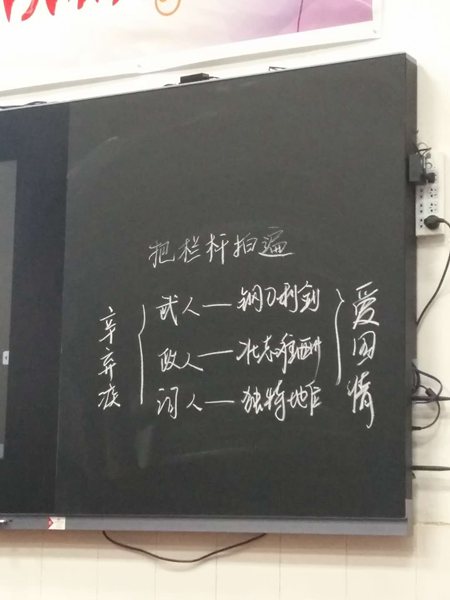 把栏杆拍遍
辛弃疾
武人——钢刀利剑
政人——壮志难酬
词人——独特地位
爱国情